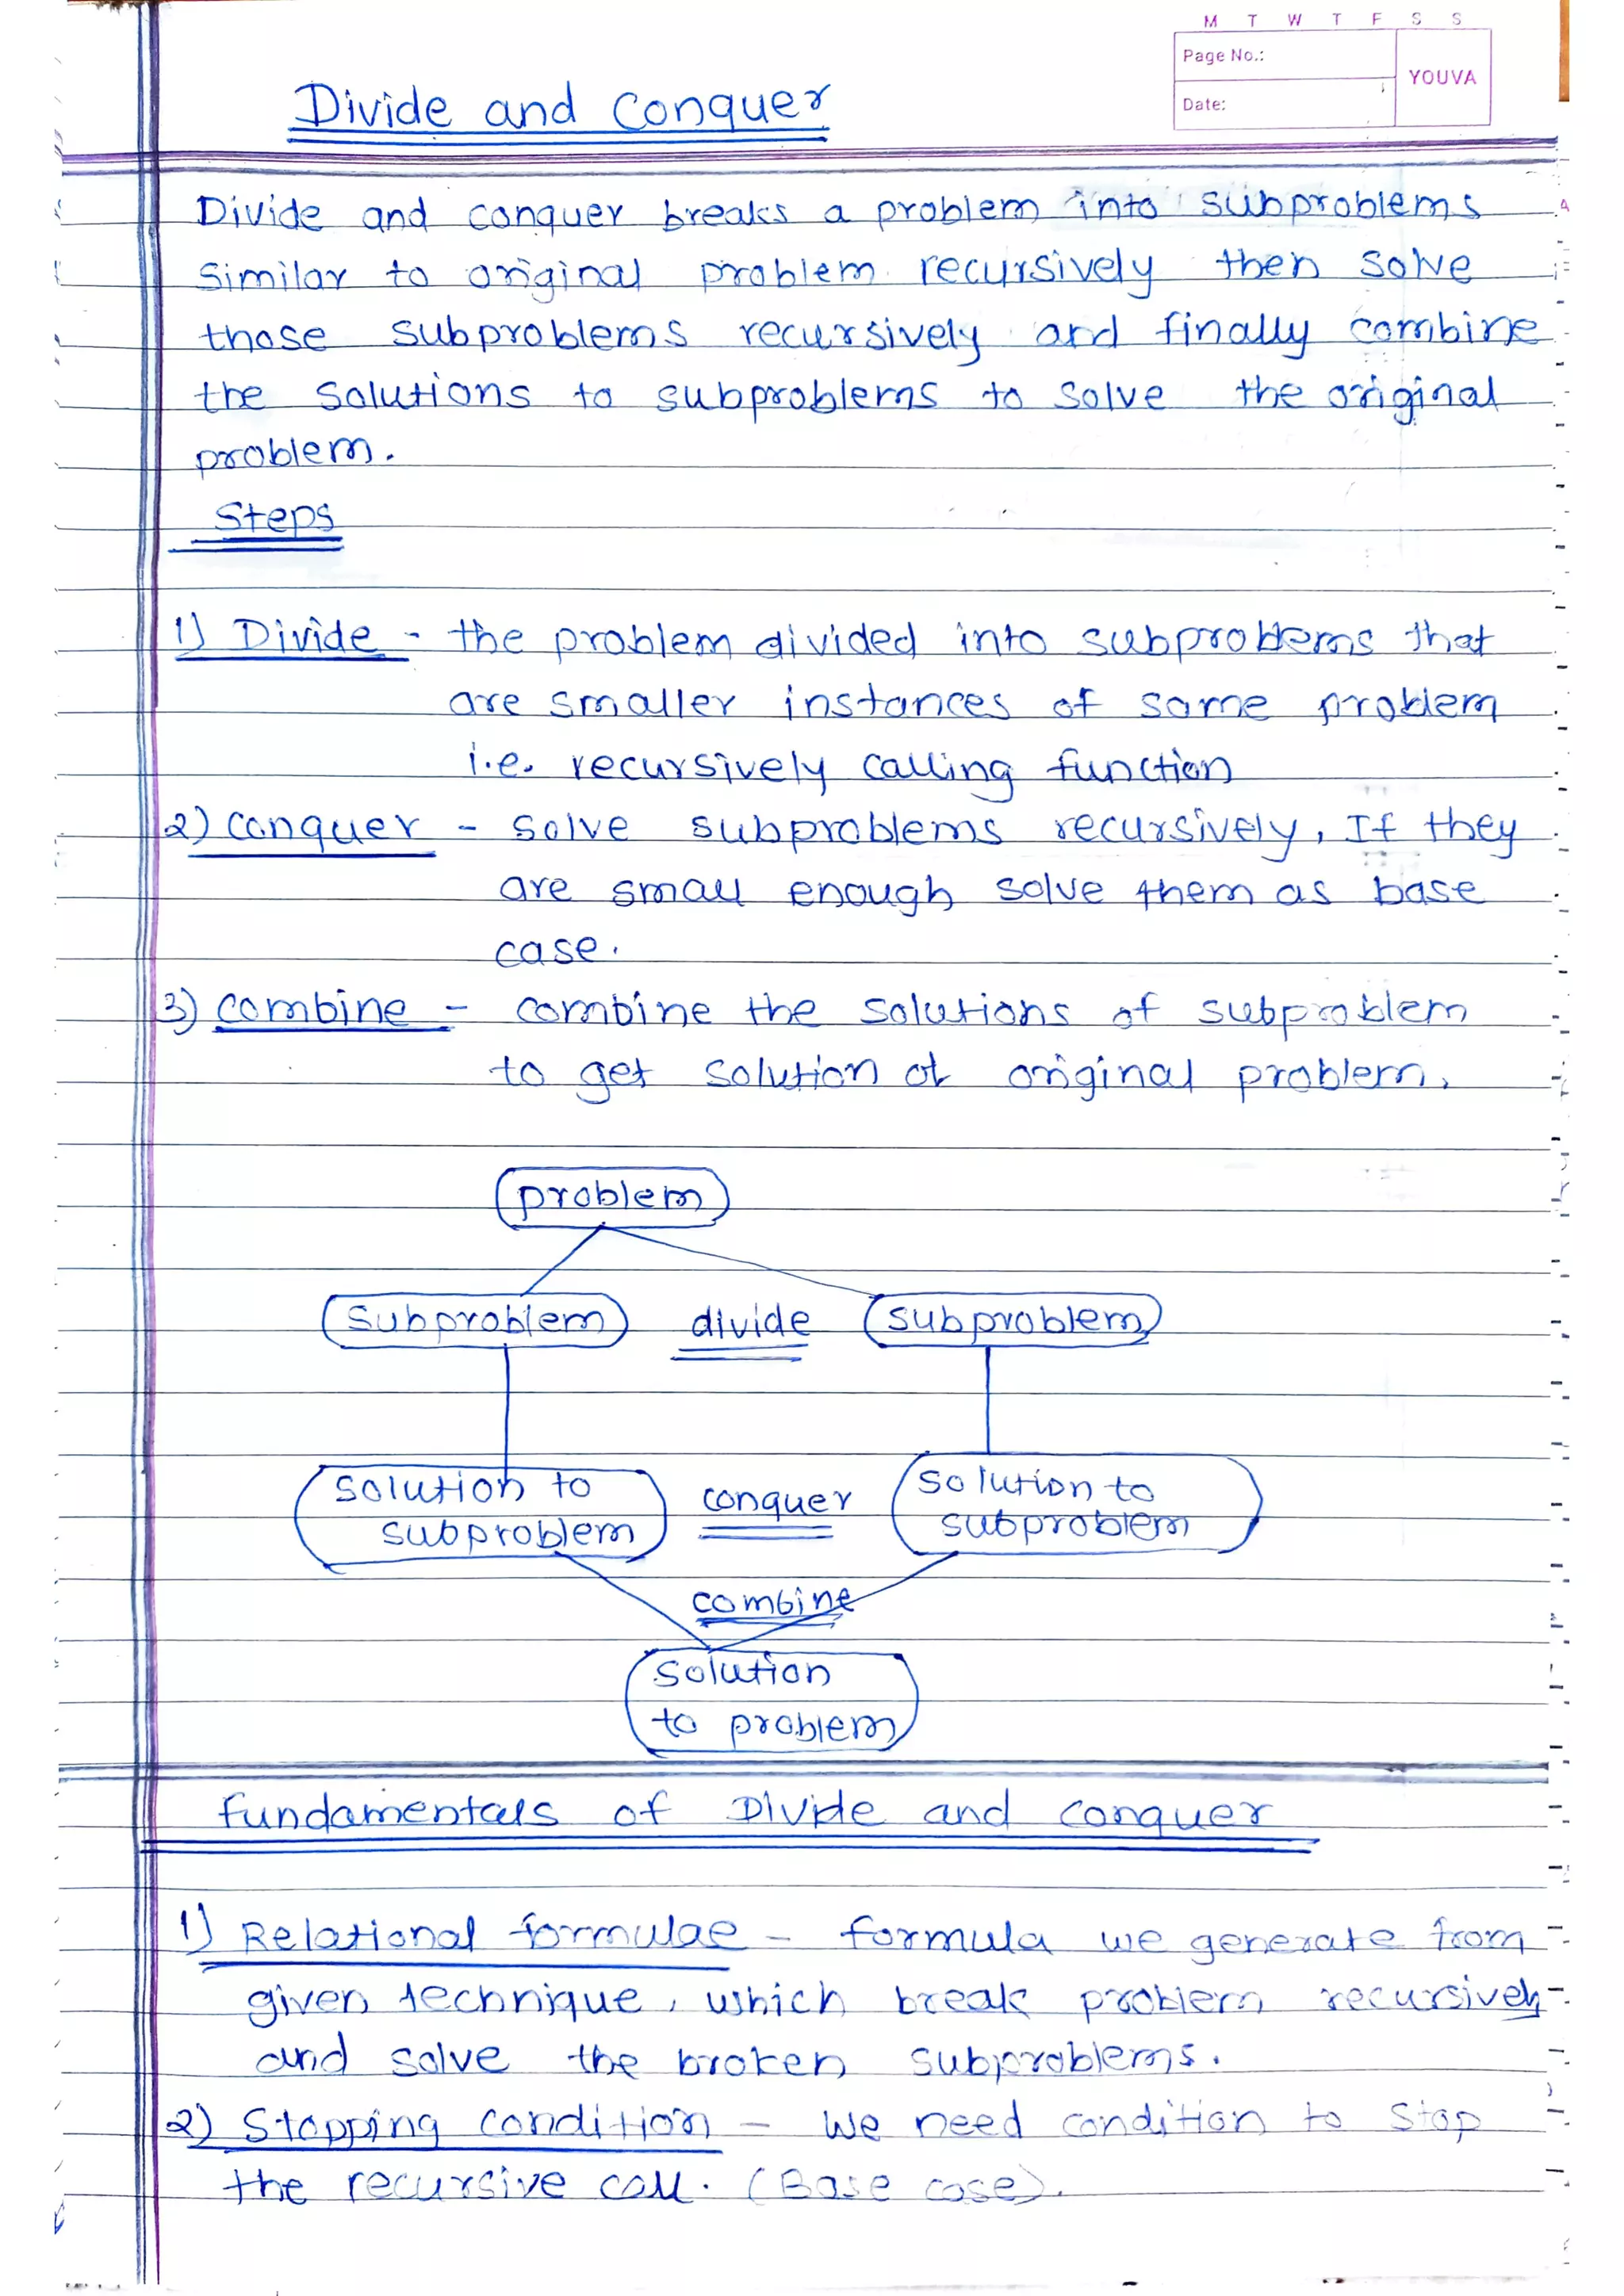 M T W T F S S
Page No.:
YOUVA
Date:
Divide and Conquer
Divide and conquer breaks a problem into subproblems
similar to original problem recursively then solve
those subproblems recursively and finally combine
the solutions to subproblems to solve the original
problem.
Steps
1) Divide - the problem divided into subproblems that
are smaller instances of same problem
i.e. recursively calling function
2) conquer - solve subproblems recursively, If they
are small enough solve them as base
case.
3) combine - combine the solutions of subproblem
to get solution of original problem.
problem
subproblem divide subproblem
solution to subproblem conquer solution to subproblem
combine
solution
to problem
fundamentals of Divide and conquer
1) Relational formulae - formula we generate from
given technique, which break problem recursively
and solve the broken subproblems.
2) Stopping condition - We need condition to stop
the recursive call. (Base case).